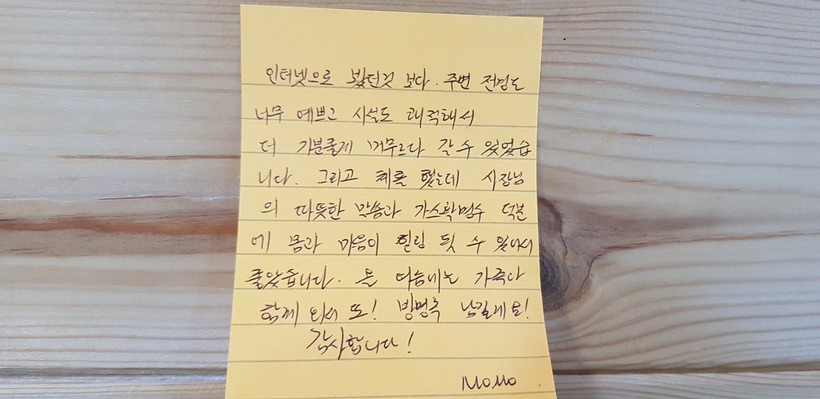 인터넷으로 봤던것 보다. 주변 전경도
너무 예쁘고 시설도 쾌적해서
더 기분좋게 머무르다 갈 수 있었습
니다. 그리고 체를 했는데 사장님
의 따뜻한 말씀과 가스활명수 덕분
에 몸과 마음이 힐링 될 수 있어서
좋았습니다. 또 다음에는 가족과
함께 와서 또! 방명록 남길게요!
감사합니다!
MoMo.